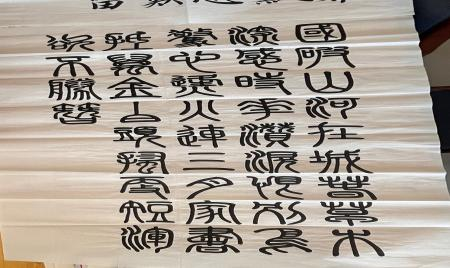 國破山河在城春草木
深感時花濺淚恨別鳥
驚心烽火連三月家書
抵萬金白頭搔更短渾
欲不勝簪